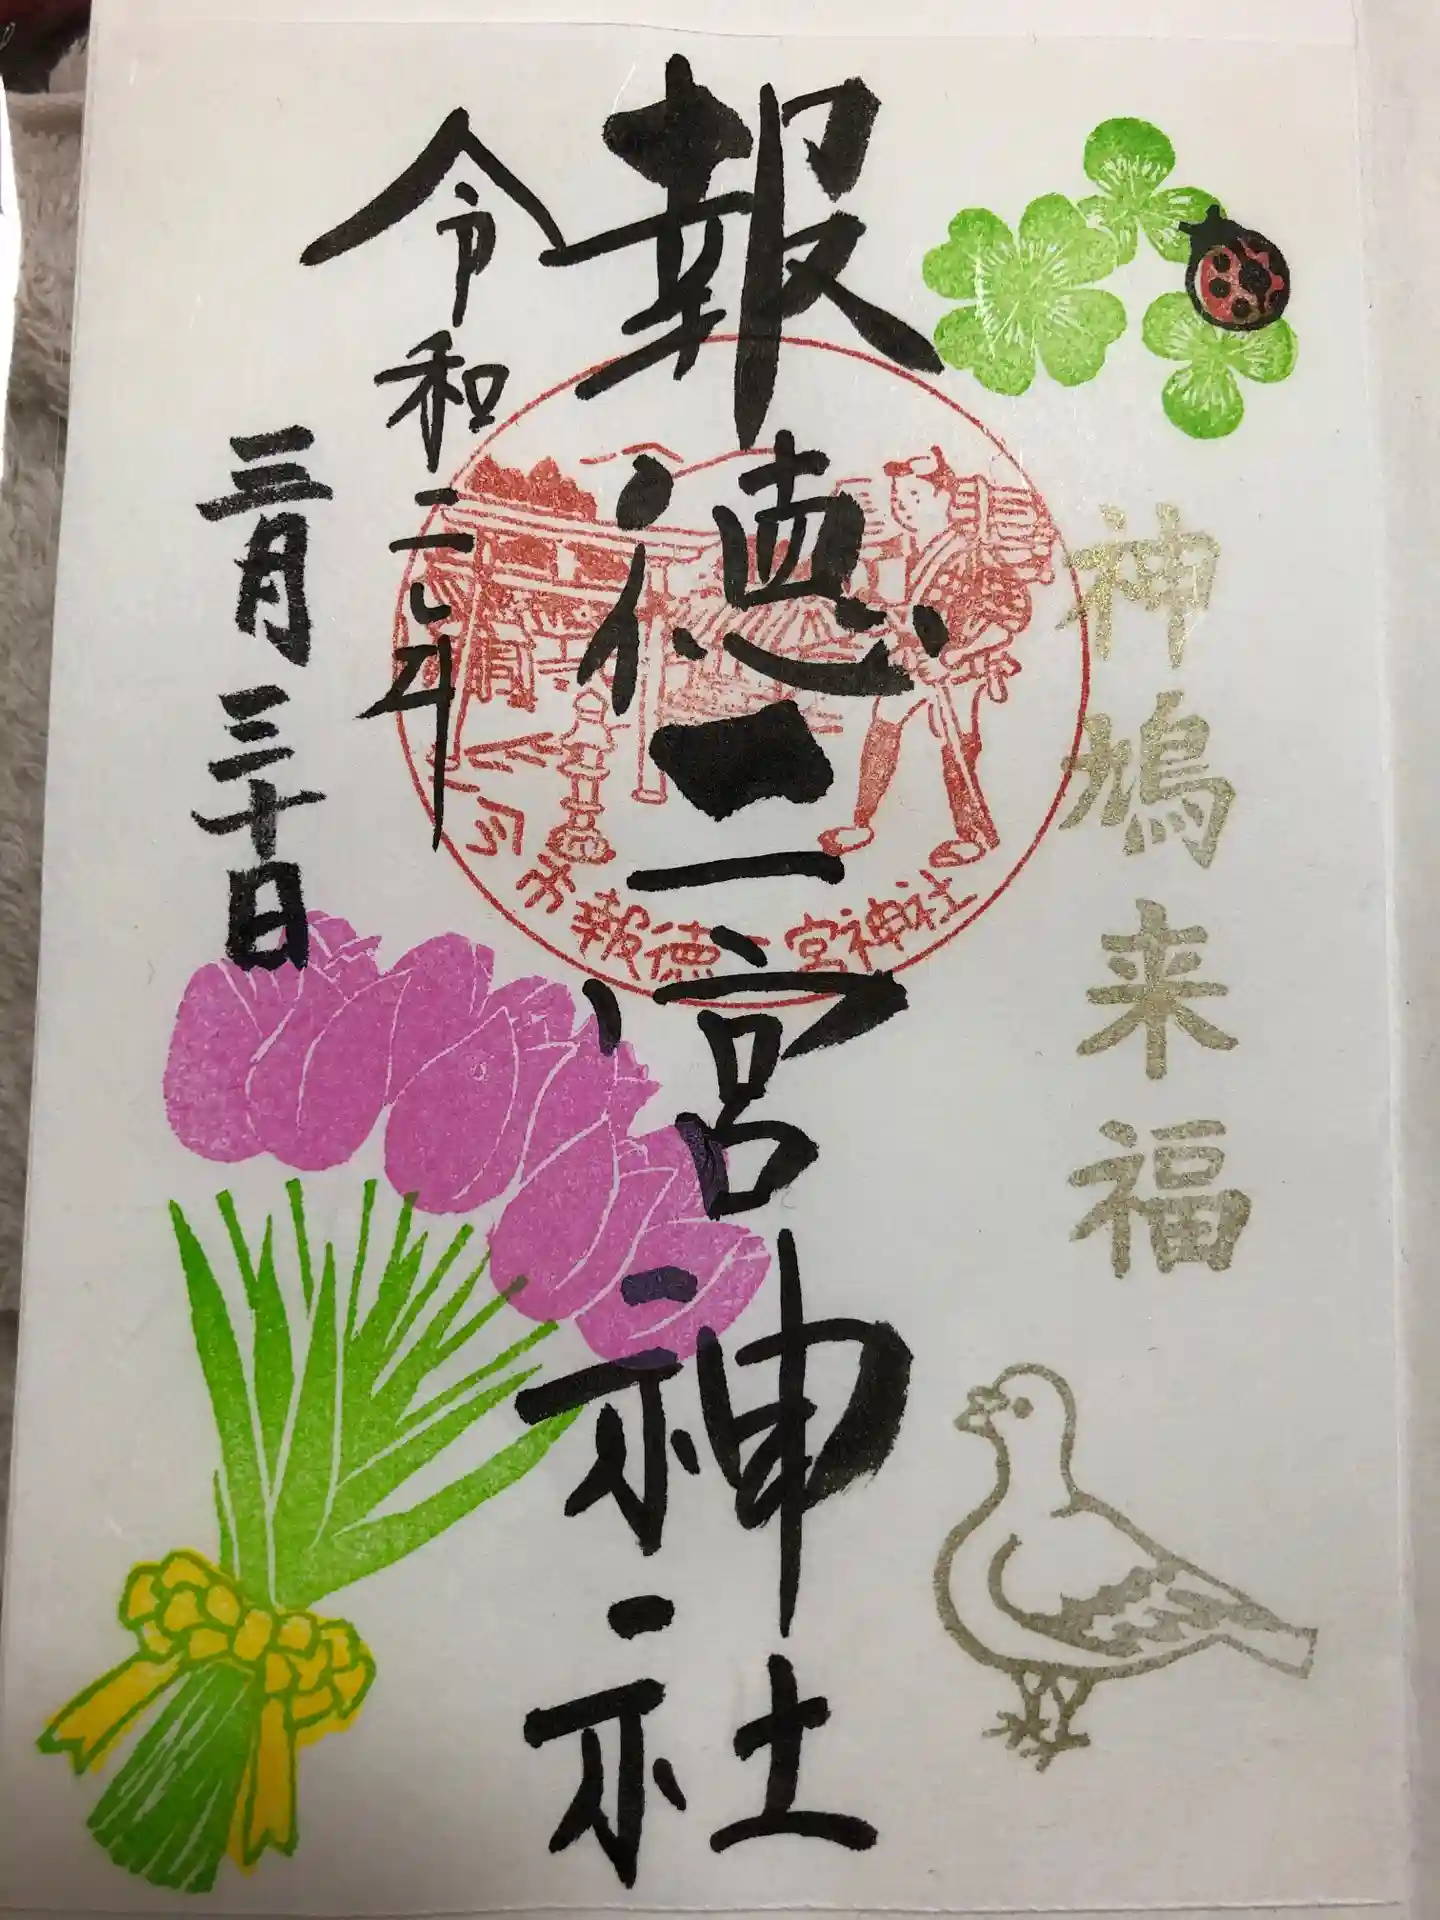 神鳩来福
報徳二宮神社
今市報徳二宮神社
令和二年
三月三十日